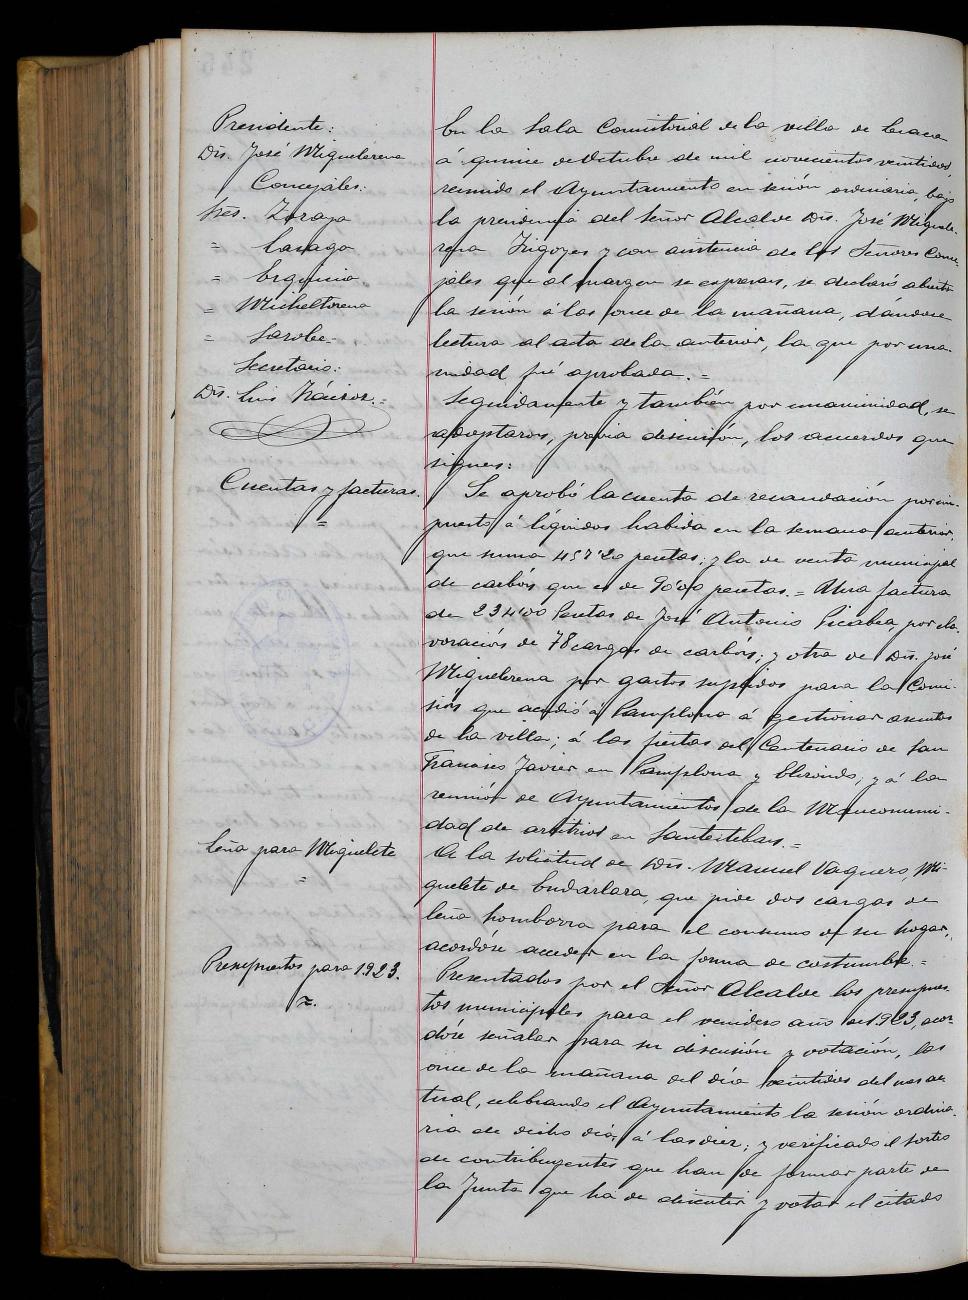 Presidente:
Dn. José Miguelerena
Concejales:
Sres. Zaraya
= Lasaga
= Erquicia
= Micheltorena
= Sarobe=
Secretario:
Dn. Luis
Cuentas y facturas.
=
Leña para Miquelete
=
Presupuestos para 1923.
=.
En la Sala Consistorial de la villa de Lesaca
á quince de Octubre de mil novecientos veintidos,
reunido el Ayuntamiento en sesión ordinaria, bajo
la presidencia del Señor Alcalde Dn. José Miguele-
rena Irigoyen y con asistencia de los Señores Conce-
jales que al margen se expresan, se declaró abierta
la sesión á las once de la mañana, dándose
lectura al acta de la anterior, la que por una-
nimidad fué aprobada.=
Seguidamente y también por unanimidad, se
adoptaron, previa discusión, los acuerdos que
siguen:
Se aprobó la cuenta de recaudación por im-
puesto á líquidos habida en la semana anterior,
que suma 457'20 pesetas; y la de venta municipal
de carbón que es de 90'00 pesetas.= Una factura
de 234'00 Pesetas de José Antonio Picabea, por ela-
voración de 78 cargas de carbón; y otra de Dn. José
Miguelerena por gastos suplidos para la Comi-
sión que acudió a Pamplona á gestionar asuntos
de la villa; á las fiestas del Centenario de San
Francisco Javier en Pamplona y Elizondo; y á la
reunión de Ayuntamientos de la Mancomuni-
dad de arbitrios en Santesteban.=
A la solicitud de Dn. Manuel Vaquero, Mi-
quelete de Endarlaza, que pide dos cargas de
leña homborra para el consumo de su hogar,
acordóse acceder en la forma de costumbre.=
Presentados por el Señor Alcalde los presupues-
tos municipales para el venidero año de 1923, acor-
dóse señalar para su discusión y votación, las
once de la mañana del día veintidos del mes ac-
tual, celebrando el Ayuntamiento la sesión ordina-
ria de dicho día, á las diez; y verificado el sorteo
de contribuyentes que han de formar parte de
la Junta que ha de discutir y votar el citado